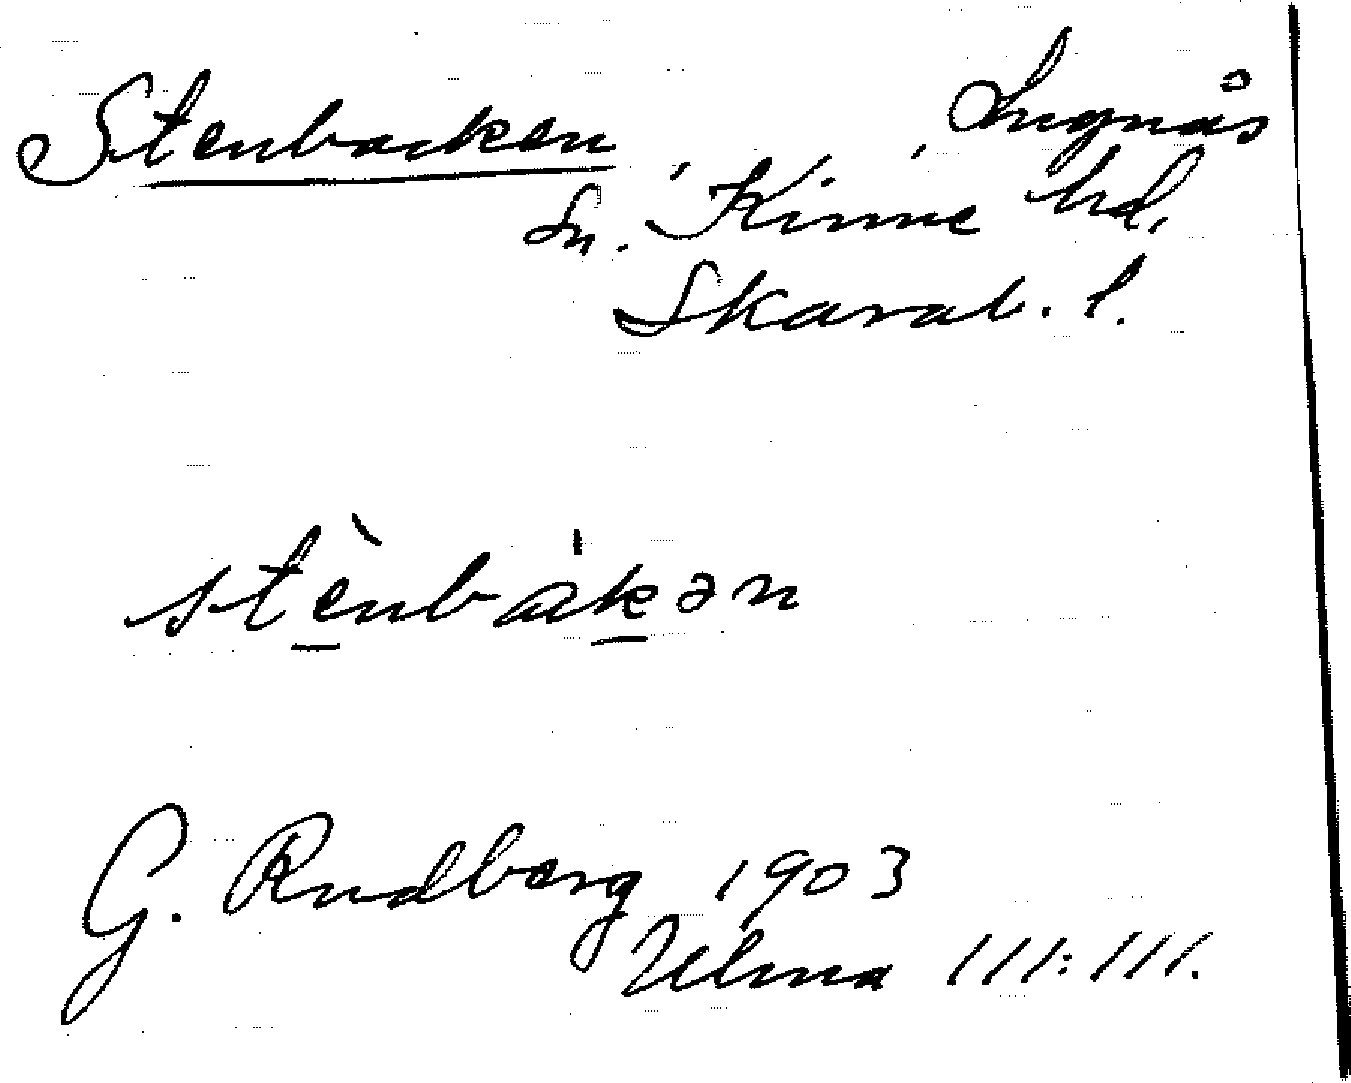 Stenbacken Lugnås
sn. Kinne hd.
Skarab. l.
stènbákən
G. Rudberg 1903
Ulma 111:111.